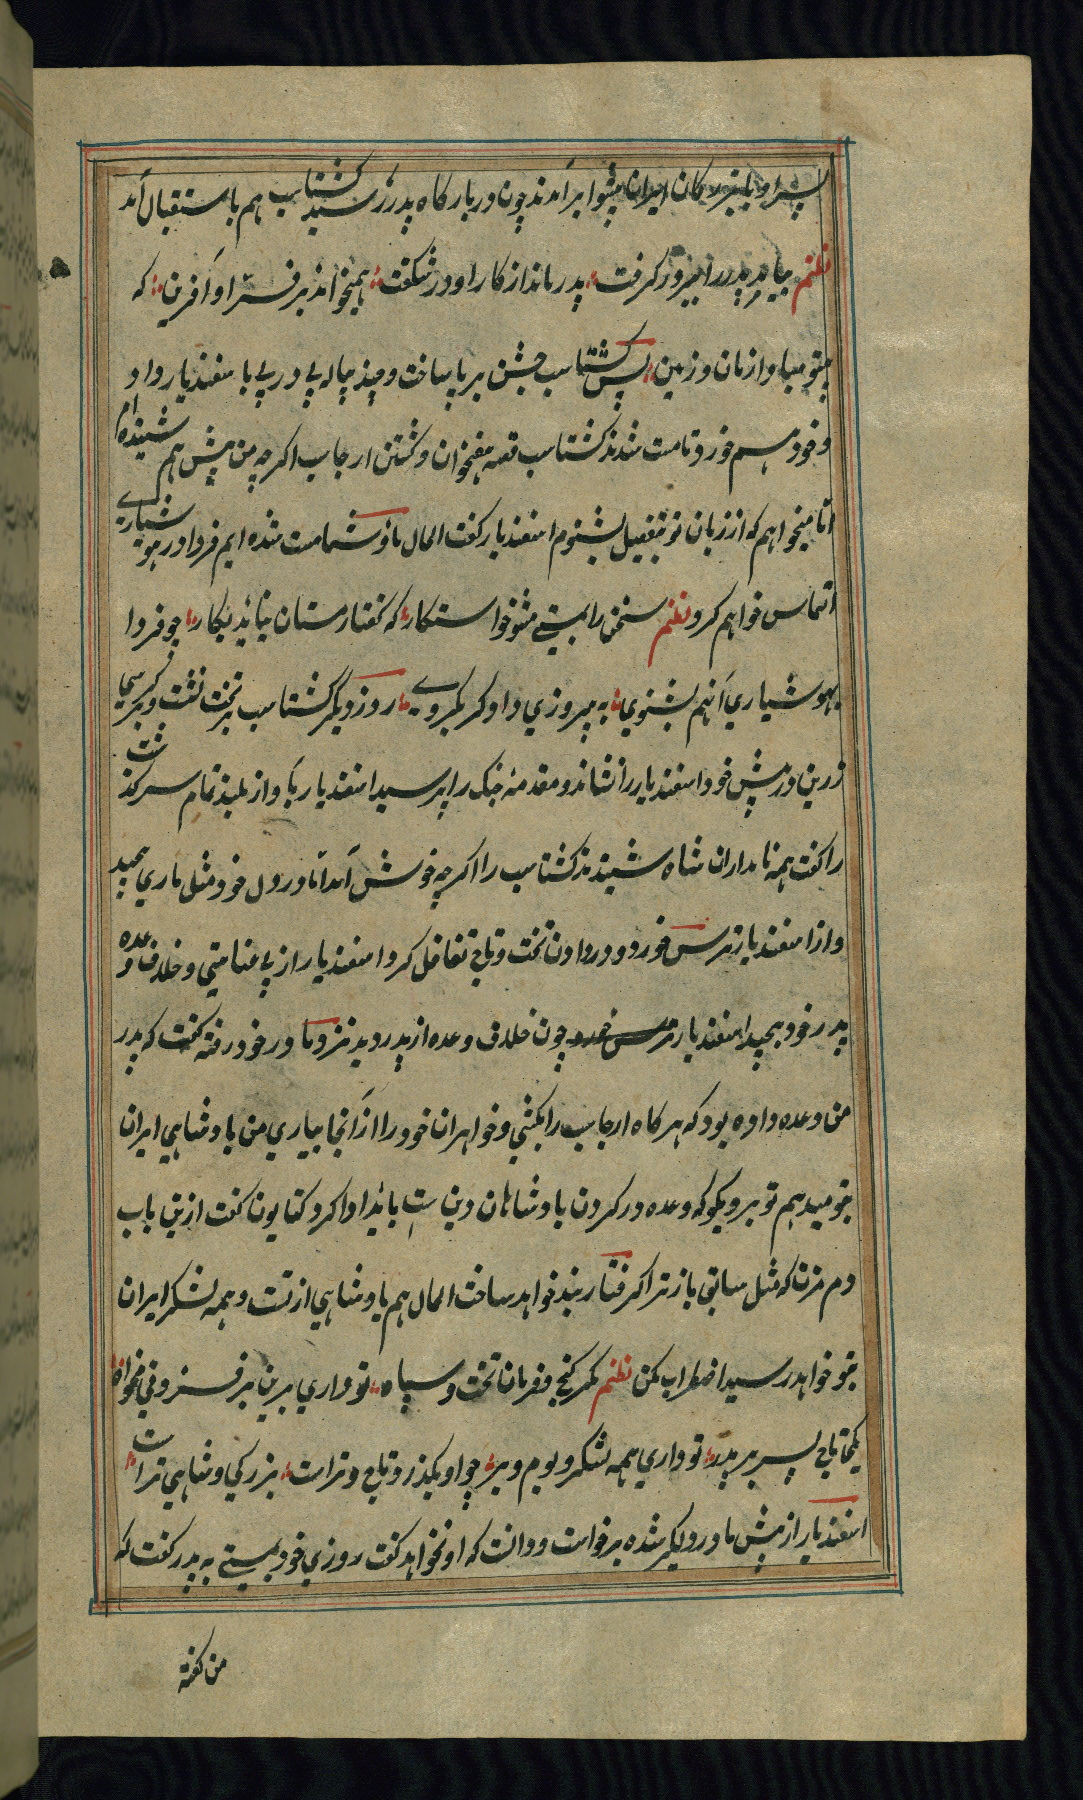 پسر او با بزرگان ایران پیشوا برآمدند چون در بارگاه پدر رسید گشتاسب هم باستقبال آمد
نظم بیامد پدر را ببر در گرفت پدر ماند از کار او در شگفت همیخواند بر فر او آفرین که
بیتو مبادا زمان و زمین پس گشتاسب جشن برپا ساخت و چند پیاله پی در پی باسفندیار داد
و خود هم خورد تا مست شدند گشتاسب قصه هفتخوان و کشتن ارجاسب اگرچه من پیش هم شنیده ام
اما میخواهم که از زبان تو بتفصیل بشنوم اسفندیار گفت الحال ما و شما مست شده ایم فردا در هوشیاری
التماس خواهم کرد نظم سخن را بمستی مشو خواستگار که گفتار مستان نیاید بکار چو فردا
بهوشیاری آنهم بشنوی به پیروزی دادگر بگروی روز دیگر گشتاسب بر تخت نشست و بر کرسی
زرین در پیش خود اسفندیار را نشاند و مقدمه جنگ را پرسید اسفندیار بآواز بلند تمام سرگذشت
را گفت همه نامداران شاه شنیدند گشتاسب را اگرچه خوش آمد اما در دل خود مثل مار می پیچید
و از اسفندیار ترس خورد و در دادن تخت و تاج تغافل کرد اسفندیار از بی عنایتی و خلاف وعده
پدر خود پیچید اسفندیار چون خلاف وعده از پدر دید نزد مادر خود رفته گفت که پدر
من وعده داده بود که هرگاه ارجاسب را بکشی و خواهران خود را از آنجا بیاری من پادشاهی ایران
بتو میدهم تو برو بگو که وعده در گردن پادشاهان دین ست باید ادا کرد کتایون گفت ازین باب
دم مزن که مثل سابق باز ترا گرفتار بند خواهد ساخت الحال هم پادشاهی از تست و همه لشکر ایران
بتو خواهد رسید اضطراب مکن نظم مگر گنج و فرمان تخت و سپاه تو داری برین بر فزونی مخواه
یکی تاج پسر بر پدر تو داری همه لشکر و بوم و بر چو او بگذرد تاج و تراست بزرگی و شاهی تراست
اسفندیار از پیش مادر دلگیر شده برخواست و دانست که او نخواهد گفت روزی خود بمستی به پدر گفت که
من گفته